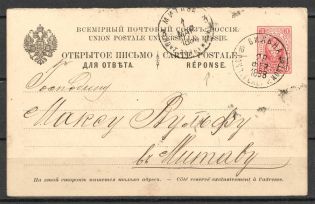 ВСЕМІРНЫЙ ПОЧТОВЫЙ СОЮЗЪ. РОССІЯ.
UNION POSTALE UNIVERSELLE. RUSSIE.
ОТКРЫТОЕ ПИСЬМО CARTE POSTALE
ДЛЯ ОТВѢТА. RÉPONSE.
Господину
Максу Вульфу
въ Митаву
На этой сторонѣ пишется только адресъ. — Côté réservé exclusivement à l'adresse.